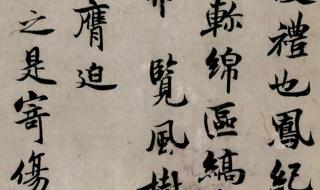 禮也鳳紀
軫綿區縞
覽風樹
膺迫
之是寄傷